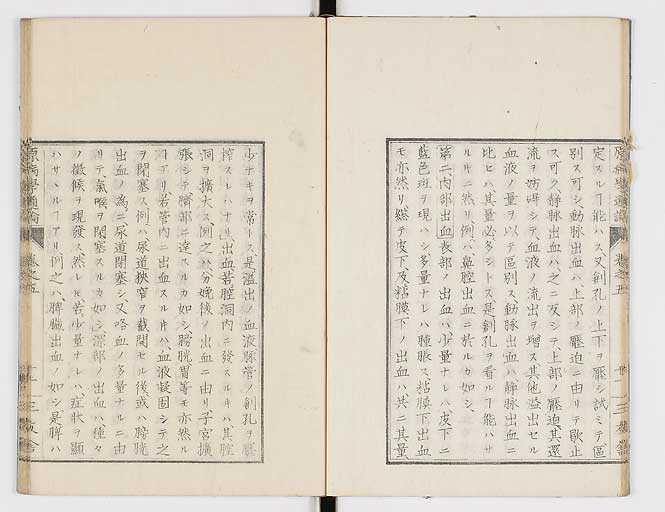 定スルヿ能ハス又創孔ノ上下ヲ壓シ試ミテ區
別ス可シ動脉出血ハ上部ノ壓迫ニ由リテ歇止
ス可ク静脉出血ハ之ニ反シテ上部ノ壓迫其還
流ヲ妨碍シテ血液ノ流出ヲ增ス其他溢出セル
血液ノ量ヲ以テ區別ス動脉出血ハ静脉出血ニ
比セハ其量必多シトス是創孔ヲ看ルヿ能ハサ
ルキニ然リ例ハ鼻腔出血ニ於ルカ如シ
第二内部出血表部ノ出血ハ少量ナレハ皮下ニ
藍色斑ヲ現ハシ多量ナレハ腫脹ス粘膜下出血
モ亦然リ総テ皮下及粘膜下ノ出血ハ共ニ其量
原病學通論 卷之五
三友舍
少ナキヲ常トス是溢出ノ血液脉管ノ創孔ヲ壓
搾スレハナリ出血若腔洞内ニ發スルキハ其腔
洞ヲ擴大ス例之ハ分娩後ノ出血ニ由リ子宮擴
張シテ臍部ニ達スルカ如シ膀胱胃等モ亦然ル
ヿアリ若管内ニ出血スルキハ血液凝固シテ之
ヲ閉塞ス例ハ尿道狹窄ヲ截開セル後或ハ膀胱
出血ノ為ニ尿道閉塞シ又咯血ノ多量ナルニ由
リテ氣喉ヲ閉塞スルカ如シ深部ノ出血ハ種々
ノ徴候ヲ現發ス然レモ若少量ナレハ症狀ヲ顯
ハサヽルヿアリ例之ハ脾臓出血ノ如シ是脾ハ
原病學通論 卷之五
三友舍